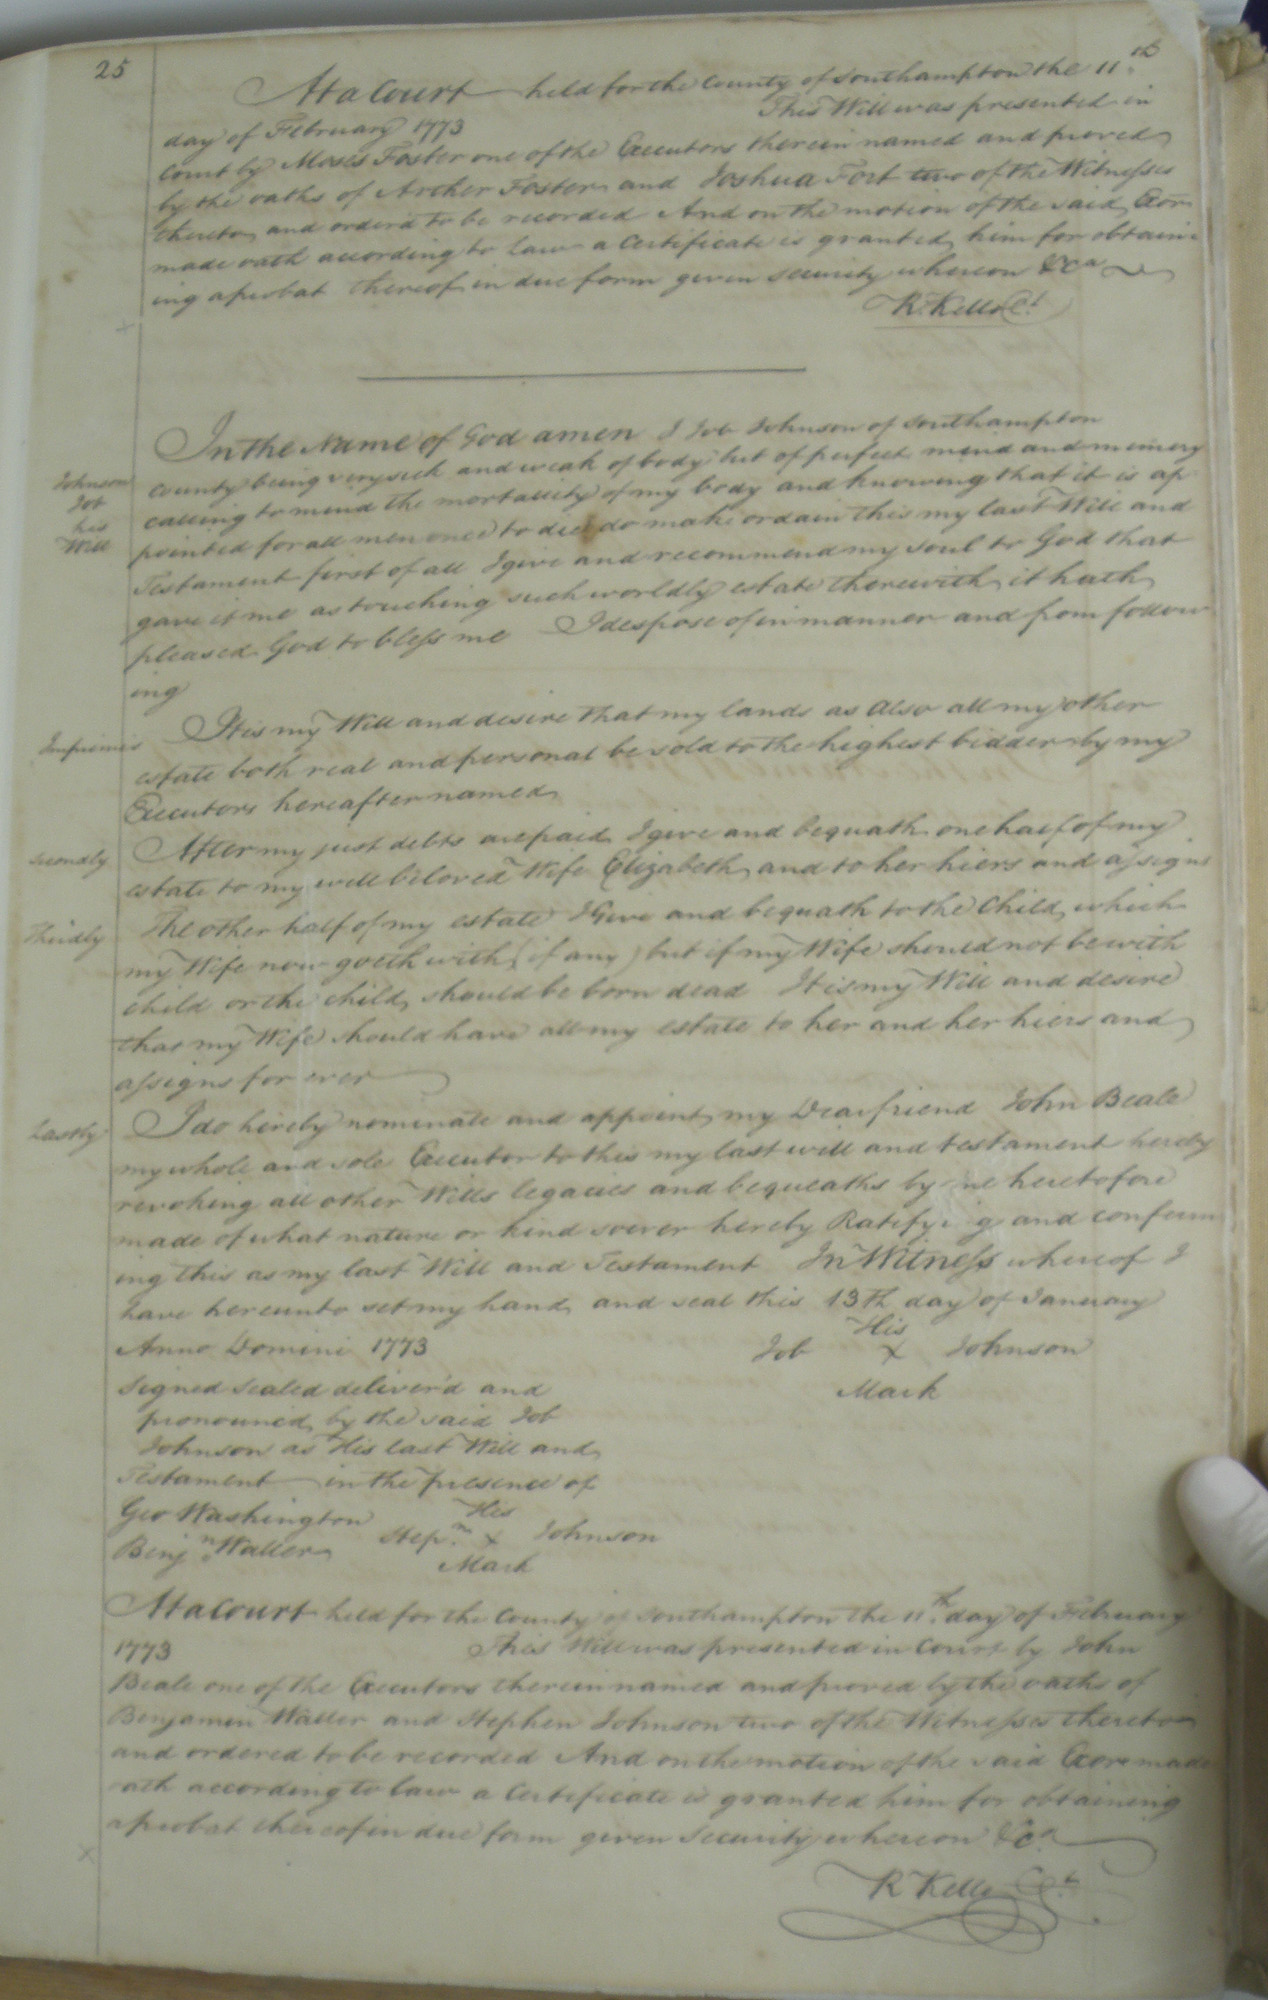 25
At a Court held for the County of Southampton the 11th
day of February 1773 This Will was presented in
Court by Moses Foster one of the Executors therein named and proved
by the oaths of Archer Foster and Joshua Fort two of the Witnesses
thereto and order'd to be recorded And on the motion of the said Exor
made oath according to law a Certificate is granted him for obtain
ing a probat thereof in due form given security whereon &ca
R. Kello Ct
In the Name of God amen I Job Johnson of Southampton
county being very sick and weak of body but of perfect mind and memory
calling to mind the mortallity of my body and knowing that it is ap
pointed for all men once to die do make ordain this my last Will and
Testament first of all I give and recommend my soul to God that
gave it me as touching such worldly estate therewith it hath
pleased God to bless me I despose of in manner and from follow
ing
Johnson
Job
his
Will
Imprimis It is my Will and desire that my lands as also all my other
estate both real and personal be sold to the highest bidder by my
Executors hereafter named
Secondly After my just debts are paid I give and bequath one half of my
estate to my well beloved Wife Elizabeth and to her hiers and assigns
Thirdly The other half of my estate I Give and bequath to the Child which
my Wife now goeth with (if any) but if my Wife should not be with
child or the child should be born dead It is my Will and desire
that my Wife should have all my estate to her and her hiers and
assigns for ever
Lastly I do hereby nominate and appoint my Dear friend John Beale
my whole and sole Executor to this my last will and testament hereby
revoking all other Wills legacies and bequeaths by me heretofore
made of what nature or kind soever hereby Ratifying and confirm
ing this as my last Will and Testament In Witness whereof I
have hereunto set my hand and seal this 13th day of January
Anno Domini 1773
His
Job x Johnson
Mark
Signed sealed deliver'd and
pronounced by the said Job
Johnson as His last Will and
Testament in the presence of
Geo Washington His
Benjn Waller Stepn x Johnson
Mark
At a Court held for the County of Southampton the 11th day of February
1773 This Will was presented in Court by John
Beale one of the Executors therein named and proved by the oaths of
Benjamin Waller and Stephen Johnson two of the Witnesses thereto
and ordered to be recorded And on the motion of the said Exor made
oath according to law a Certificate is granted him for obtaining
a probat thereof in due form given Security whereon &ca
R Kello Ct